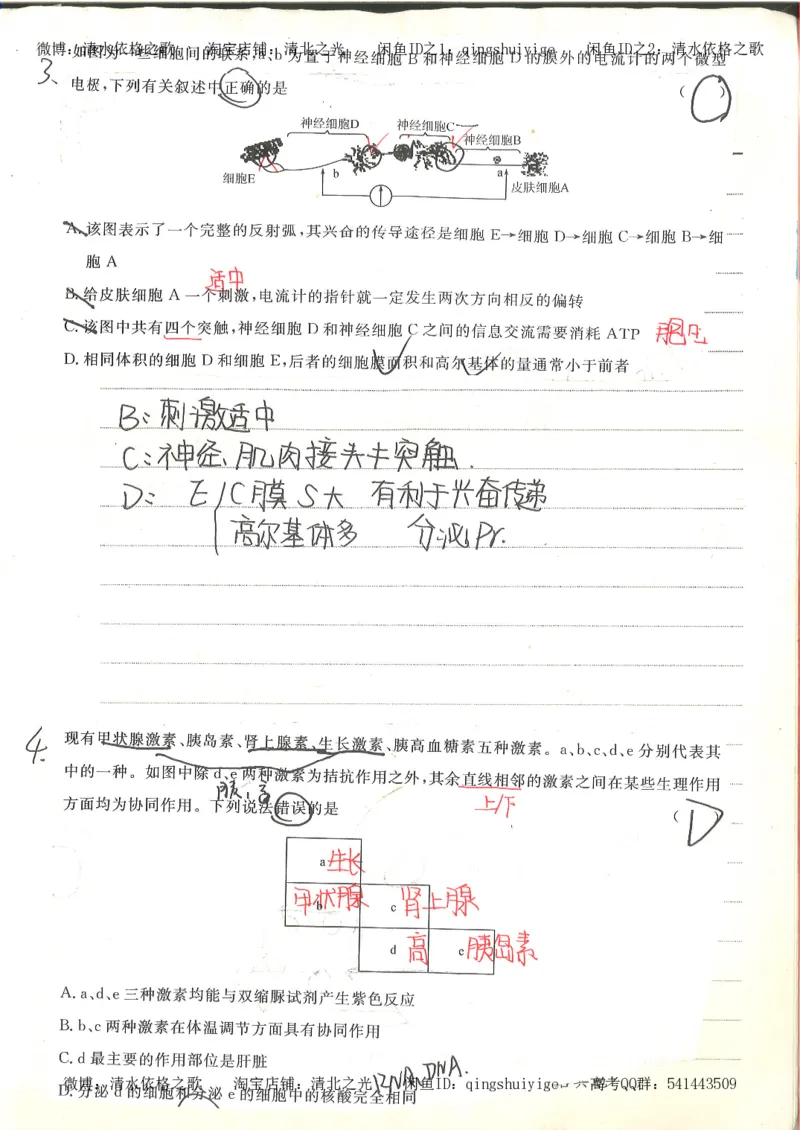 微博：清水依格之歌 淘宝店铺：清北之光 闲鱼ID之1：qingshuiyige 闲鱼ID之2：清水依格之歌
3、如图为一些细胞间的联系，a、b为置于神经细胞B和神经细胞D的膜外的电流计的两个微型
电极，下列有关叙述中正确的是 （ ）
神经细胞D 神经细胞C
神经细胞B
细胞E b a
皮肤细胞A
A. 该图表示了一个完整的反射弧，其兴奋的传导途径是细胞E→细胞D→细胞C→细胞B→细
胞A
适中
B. 给皮肤细胞A一个刺激，电流计的指针就一定发生两次方向相反的偏转
C. 该图中共有四个突触，神经细胞D和神经细胞C之间的信息交流需要消耗ATP 胞吐
D. 相同体积的细胞D和细胞E，后者的细胞膜面积和高尔基体的量通常小于前者
B：刺激适中
C：神经、肌肉接头未突触．
D： E/C膜 S大 有利于兴奋传递
高尔基体多 分泌Pr.
4. 现有甲状腺激素、胰岛素、肾上腺素、生长激素、胰高血糖素五种激素。a、b、c、d、e分别代表其
中的一种。如图中除d、e两种激素为拮抗作用之外，其余直线相邻的激素之间在某些生理作用
胰，高 上/下
方面均为协同作用。下列说法错误的是 （ D ）
a 生长
甲状腺 b c 肾上腺
d 高 e 胰岛素
A. a、d、e三种激素均能与双缩脲试剂产生紫色反应
B. b、c两种激素在体温调节方面具有协同作用
C. d最主要的作用部位是肝脏
RNA DNA.
微博：清水依格之歌 淘宝店铺：清北之光 闲鱼ID：qingshuiyige 高考QQ群：541443509
D. 分泌d的细胞和分泌e的细胞中的核酸完全相同